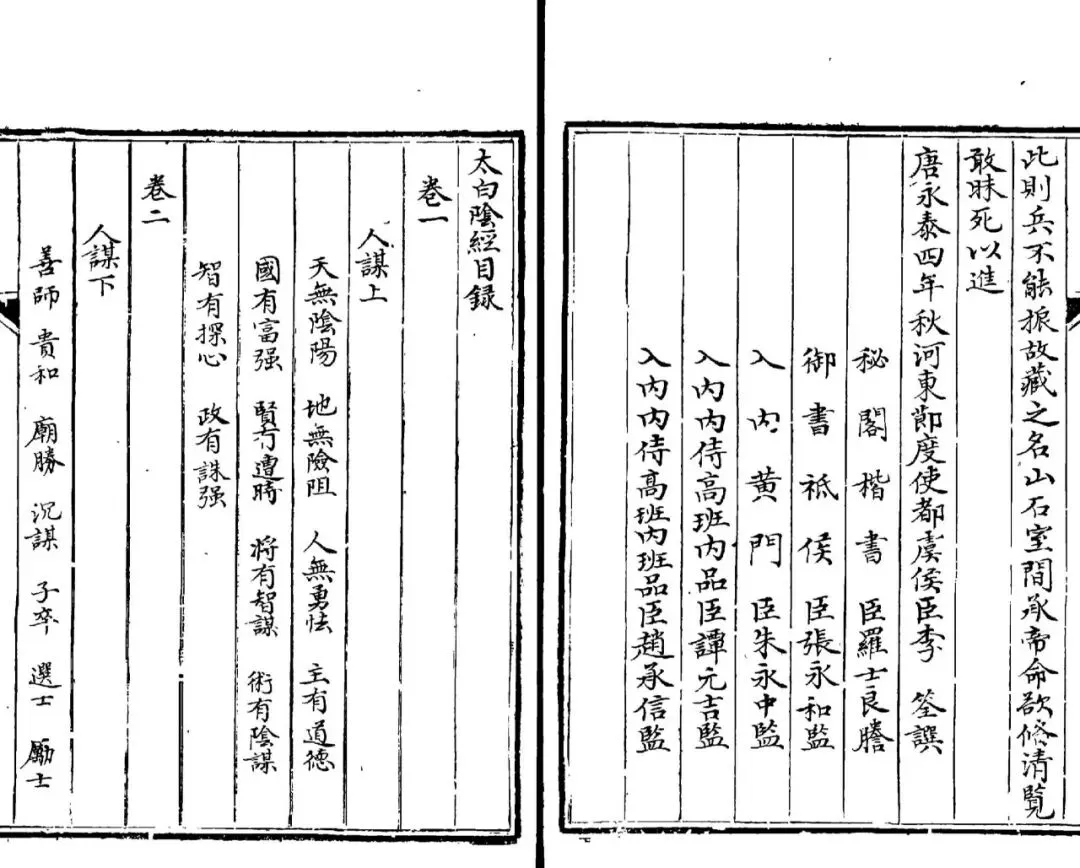 此則兵不能振故藏之名山石室間承帝命欲俻清覧
敢昧死以進
唐永泰四年秋河東節度使都虞侯臣李 筌譔
秘閣楷書臣羅士良謄
御書祗侯臣張永和監
入内黄門臣朱永中監
入内内侍高班内品臣譚元吉監
入内内侍高班内班品臣趙承信監
太白陰經目録
卷一
人謀上
天無陰陽 地無險阻 人無勇怯 主有道德
國有富强 賢有遭時 將有智謀 術有陰謀
智有探心 政有誅强
卷二
人謀下
善師 貴和 廟勝 沉謀 子卒 選士 勵士